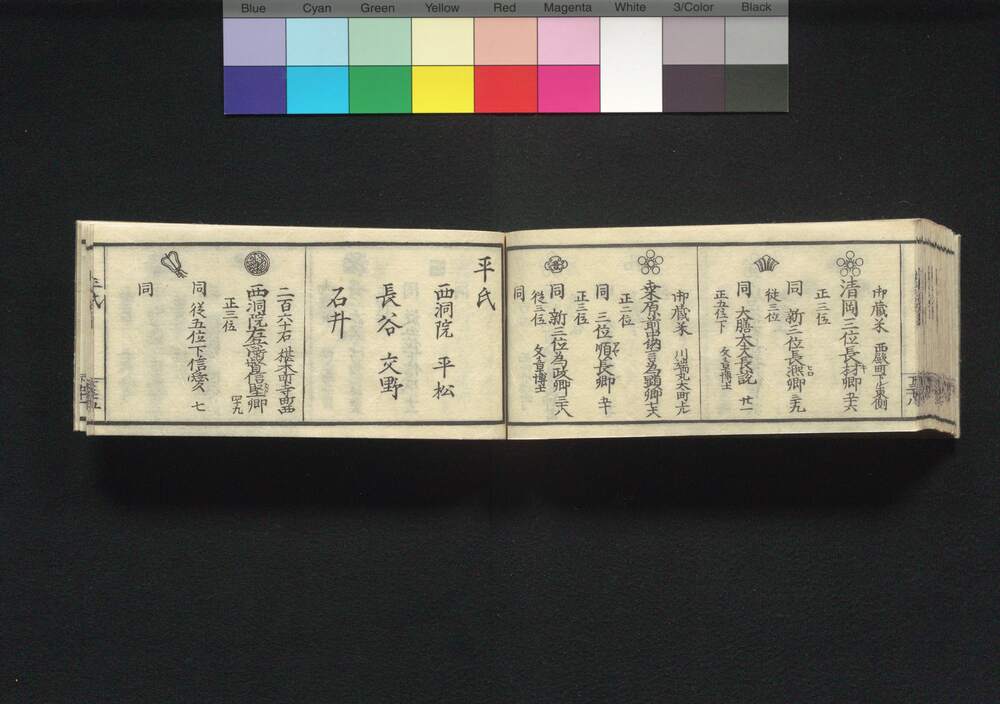 Blue Cyan Green Yellow Red Magenta White 3/Color Black
御蔵米 西殿町北東側
正二位
清岡三位長材卿
従三位
同 新三位長熈卿 三九
正五位下
同 大膳大夫長説 廿一
文章博士
御蔵米 川端丸太町北
正二位
桒原前中納言為顕卿
正三位
同 三位順長卿 五十
従三位
同 新三位為政卿 三十八
文章博士
同
平氏
西洞院 平松
長谷 交野
石井
二百六十石 椹木町寺町西
西洞院左兵衛督信堅卿 四十九
正三位
同 従五位下信愛 七
同
平氏